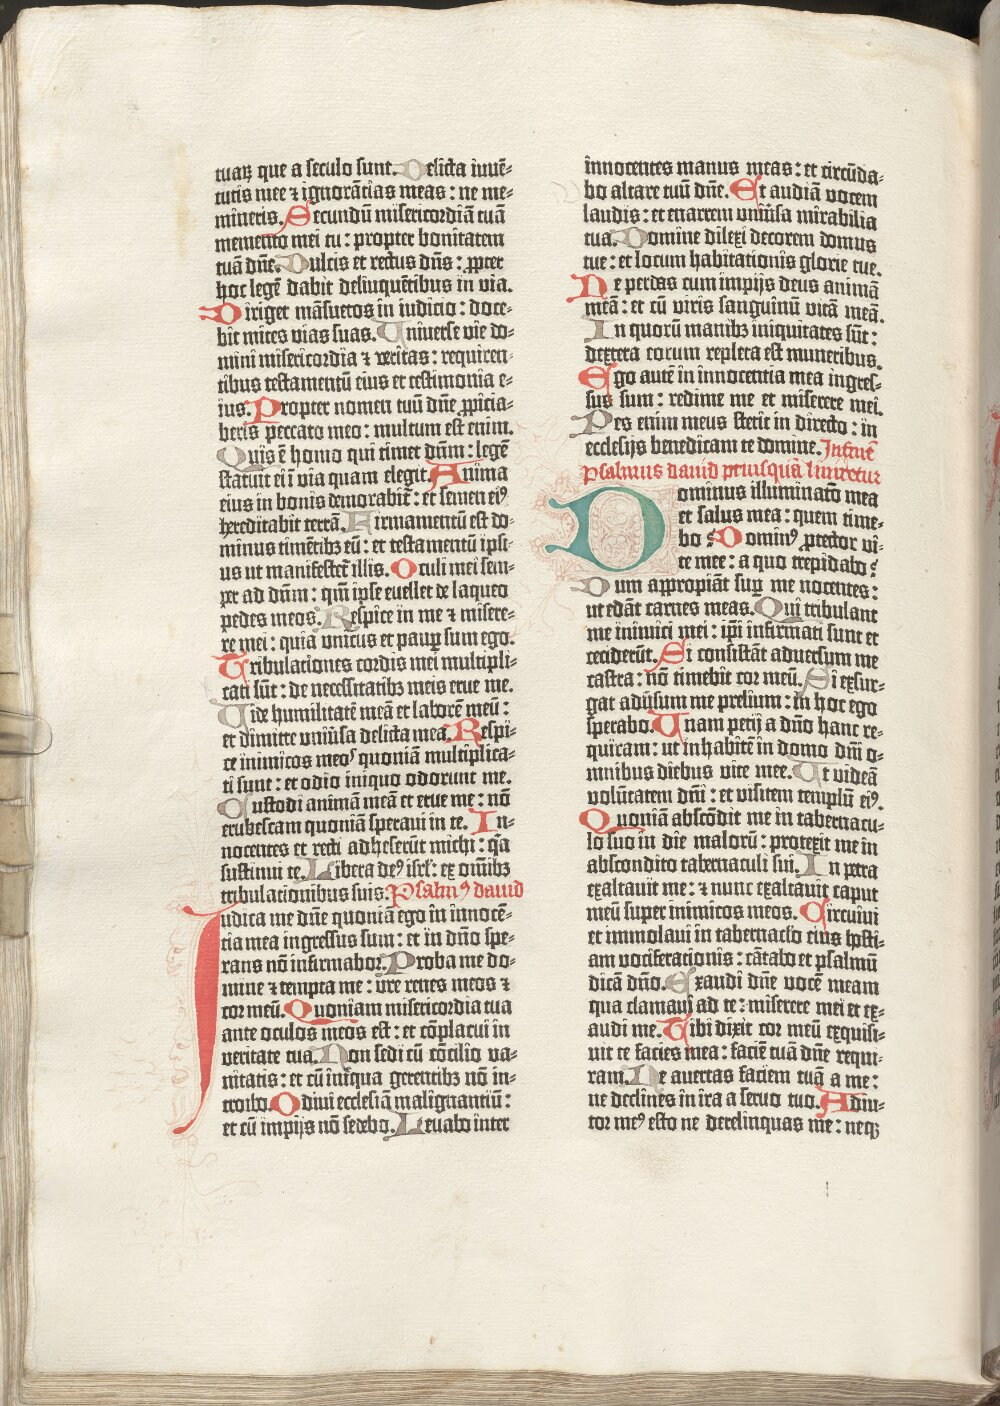 tuaꝝ que a seculo sunt. Delicta iuuē-
tutis mee ⁊ ignorācias meas : ne me-
mineris. Secundū misericordiā tuā
memento mei tu : propter bonitatem
tuā dn̄e. Dulcis et rectus dn̄s : ꝓpter
hoc legē dabit delinquētibus in via.
Diriget māsuetos in iudicio : doce-
bit mites vias suas. Uniuerse vie do-
mini misericordia ⁊ veritas : requiren-
tibus testamentū eius et testimonia e-
ius. Propter nomen tuū dn̄e ꝓpicia-
beris peccato meo : multum est enim.
Quis ē homo qui timet dn̄m : legē
statuit ei ī via quam elegit. Anima
eius in bonis demorabit̄ : et semen eiꝰ
hereditabit terrā. Firmamentū est do-
minus timētibꝫ eū : et testamentū ipsi-
us ut manifestet᷑ illis. Oculi mei sem-
per ad dn̄m : qm̄ ipse euellet de laqueo
pedes meos. Respice in me ⁊ misere-
re mei : quia vnicus et paup̄ sum ego.
Tribulationes cordis mei multipli-
cati sūt : de necessitatibꝫ meis erue me.
Uide humilitatē meā et laborē meū :
et dimitte vniūsa delicta mea. Respi-
ce inimicos meoˢ quoniā multiplica-
ti sunt : et odio iniquo oderunt me.
Custodi animā meā et erue me : nō
erubescam quoniā speraui in te. In-
nocentes et recti adheserūt michi : q̄a
sustinui te. Libera deꝰ isrl̄ : ex om̄ibꝫ
tribulacionibus suis. Psalmꝰ dauid
Iudica me dn̄e quoniā ego in innocē-
tia mea ingressus sum : et in dn̄o spe-
rans nō infirmabor. Proba me do-
mine ⁊ tempta me : vre renes meos ⁊
cor meū. Quoniam misericordia tua
ante oculos meos est : et cōplacui in
veritate tua. Non sedi cū cōcilio va-
nitatis : et cū iniqua gerentibꝫ nō in-
troibo. Odiui ecclesiā malignantiū :
et cū impijs nō sedebo. Leuabo inter
innocentes manus meas : et circūda-
bo altare tuū dn̄e. Et audiā vocem
laudis : et enarrem vniūsa mirabilia
tua. Domine dilexi decorem domus
tue : et locum habitationis glorie tue.
Ne perdas cum impijs deus animā
meā : et cū viris sanguinū vitā meā.
In quorū manibꝫ iniquitates sūt :
dextera eorum repleta est muneribus.
Ego autē in innocentia mea ingres-
sus sum : redime me et miserere mei.
Pes enim meus stetit in directo : in
ecclesijs benedicam te domine. In finē
Psalmus dauid priusquā liniretur
Dominus illuminato mea
et salus mea : quem time-
bo ? Dominꝰ ꝓtector vi-
te mee : a quo trepidabo ?
Dum appropiāt sup̄ me nocentes :
ut edāt carnes meas. Qui tribulant
me inimici mei : ip̄i infirmati sunt et
ceciderūt. Si consistāt aduersum me
castra : nō timebit cor meū. Si exsur-
gat adūsum me prelium : in hoc ego
sperabo. Unam petij a dn̄o hanc re-
quiram : ut inhabitē in domo dn̄i o-
mnibus diebus vite mee. Ut videā
volūtatem dn̄i : et visitem templū eiꝰ.
Quoniā abscōdit me in tabernacu-
lo suo in die malorū : protexit me in
abscondito tabernaculi sui. In petra
exaltauit me : ⁊ nunc exaltauit caput
meū super inimicos meos. Circuiui
et immolaui in tabernaclo eius hosti-
am vociferacionis : cātabo et psalmū
dicā dn̄o. Exaudi dn̄e vocē meam
qua clamaui ad te : miserere mei et ex-
audi me. Tibi dixit cor meū exquisi-
uit te facies mea : faciē tuā dn̄e requi-
ram. Ne auertas faciem tuā a me :
ne declines in ira a seruo tuo. Adiu-
tor meꝰ esto ne derelinquas me : neqꝫ